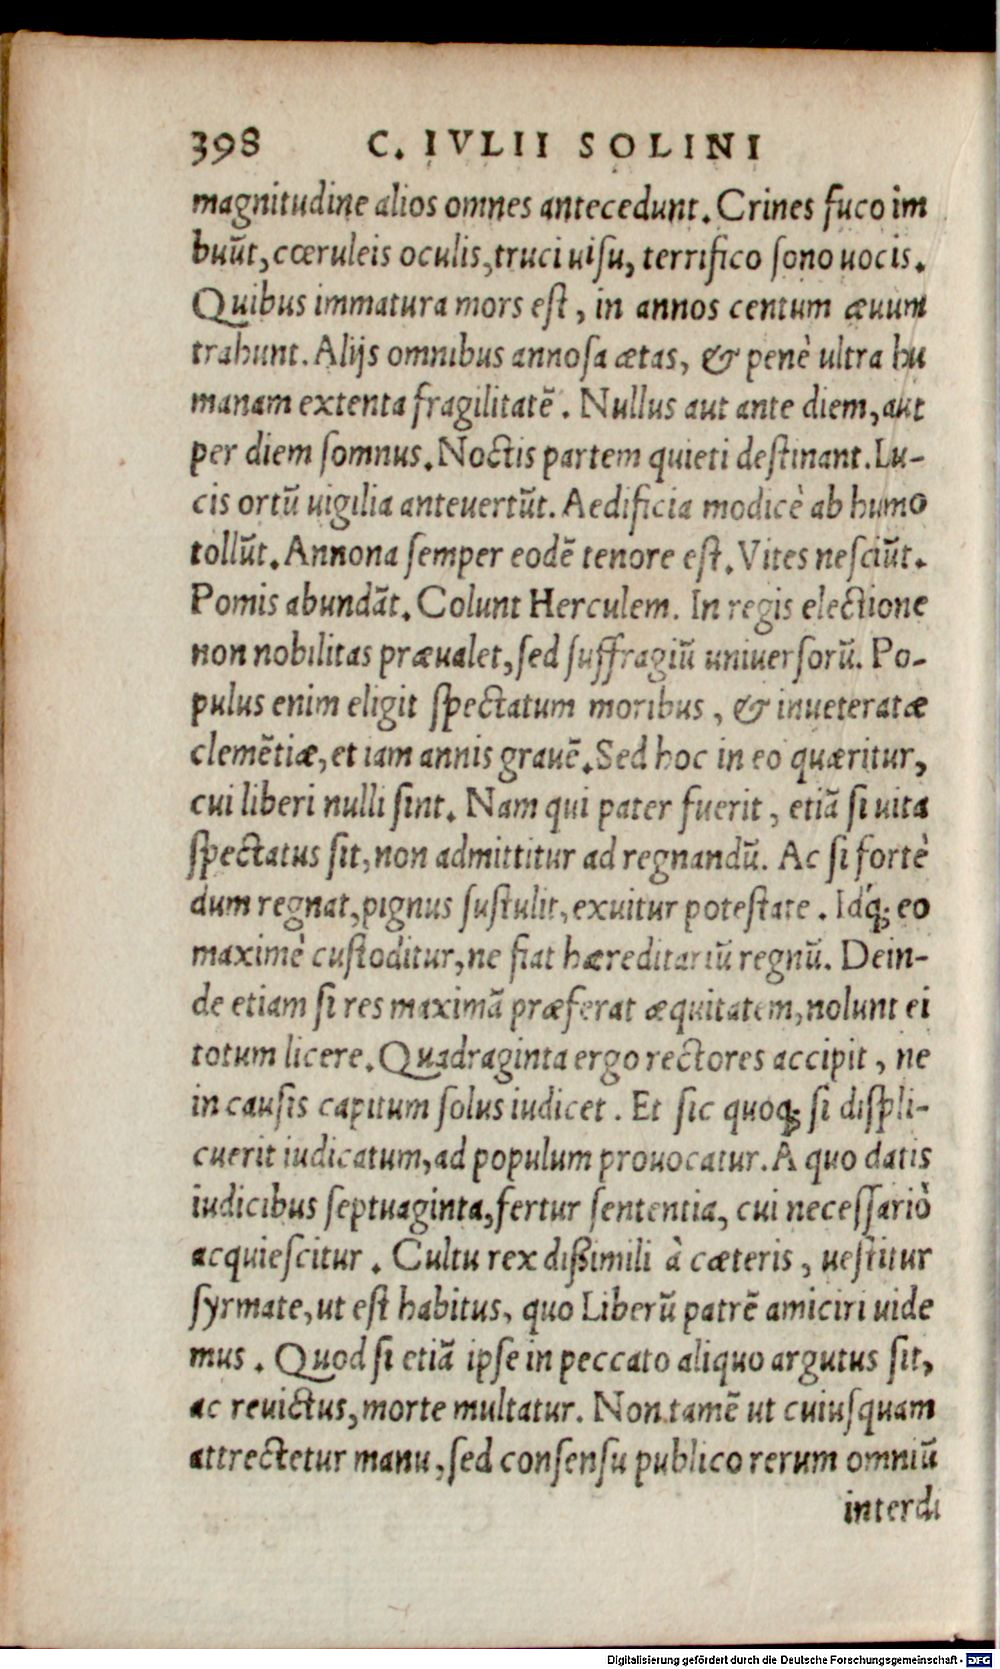 398 C. IVLII SOLINI
magnitudine alios omnes antecedunt. Crines fuco im
buũt, cœruleis oculis, truci uiſu, terrifico ſono uocis.
Quibus immatura mors eſt, in annos centum æuum
trahunt. Alijs omnibus annoſa ætas, & penè ultra hu
manam extenta fragilitatẽ. Nullus aut ante diem, aut
per diem ſomnus. Noctis partem quieti deſtinant. Lu-
cis ortũ uigilia anteuertũt. Aedificia modicè ab humo
tollũt. Annona ſemper eodẽ tenore eſt. Vites neſciũt.
Pomis abundãt. Colunt Herculem. In regis electione
non nobilitas præualet, ſed ſuffragiũ uniuerſorũ. Po-
pulus enim eligit ſpectatum moribus, & inueteratæ
clemẽtiæ, et iam annis grauẽ. Sed hoc in eo quæritur,
cui liberi nulli ſint. Nam qui pater fuerit, etiã ſi uita
ſpectatus ſit, non admittitur ad regnandũ. Ac ſi fortè
dum regnat, pignus ſuſtulit, exuitur poteſtate. Idq́; eo
maximè cuſtoditur, ne fiat hæreditariũ regnũ. Dein-
de etiam ſi res maximã præferat æquitatem, nolunt ei
totum licere. Quadraginta ergo rectores accipit, ne
in cauſis capitum ſolus iudicet. Et ſic quoq; ſi diſpli-
cuerit iudicatum, ad populum prouocatur. A quo datis
iudicibus ſeptuaginta, fertur ſententia, cui neceſſariò
acquieſcitur. Cultu rex dißimili à cæteris, ueſtitur
ſyrmate, ut eſt habitus, quo Liberũ patrẽ amiciri uide
mus. Quod ſi etiã ipſe in peccato aliquo argutus ſit,
ac reuictus, morte multatur. Non tamẽ ut cuiuſquam
attrectetur manu, ſed conſenſu publico rerum omniũ
interdi
Digitalisierung gefördert durch die Deutsche Forschungsgemeinschaft - DFG